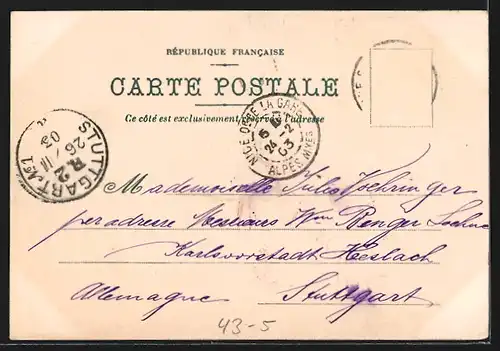 RÉPUBLIQUE FRANÇAISE
CARTE POSTALE
Ce côté est exclusivement réservé à l'adresse
NICE QRE DE LA GARE
5 E
24 -2
03
ALPES MMES
STUTTGART No 1
R 2
26 / II
03
Mademoiselle Julie
per adresse Messieurs Wm Renger Soehne
Karlsvorstadt Heslach
Allemagne Stuttgart
43-5